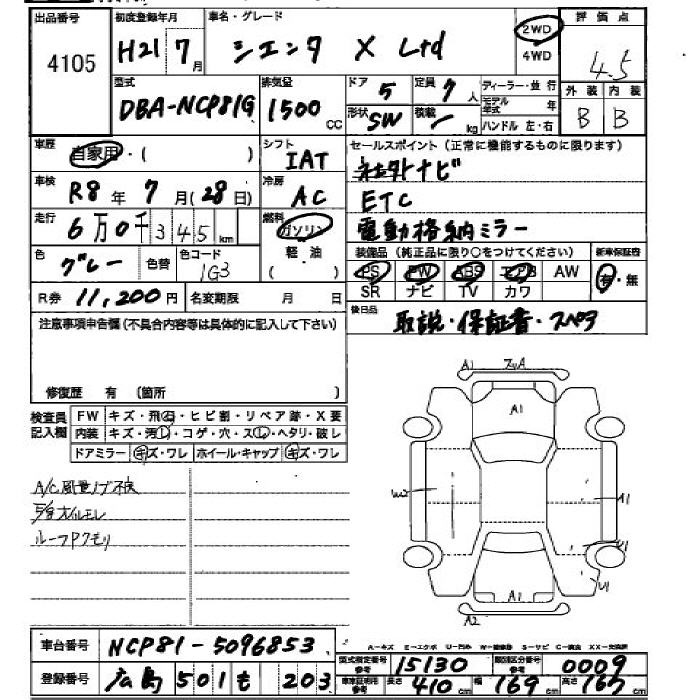 出品番号 初度登録年月 車名・グレード 2WD 評価点
4105 H21 7月 シエンタ X Ltd 4WD 4.5
型式 排気量 ドア 5 定員 7人 ディーラー・並行 外装 内装
DBA-NCP81G 1500 CC 形状 SW 積載 - kg モデル年式 年 B B
ハンドル 左・右
車歴 自家用・( ) シフト IAT セールスポイント (正常に機能するものに限ります)
車検 R8年 7月(28日) 冷房 AC 社外ナビ
ETC
走行 6万0千345km 燃料 ガソリン 電動格納ミラー
色 グレー 色替 色コード 1G3 軽・油 ( ) 装備品 (純正品に限り○をつけてください) 新車保証書
PS PW ABS エアB AW 有・無
R券 11,200円 名変期限 月 日 SR ナビ TV カワ
注意事項申告欄(不具合内容等は具体的に記入して下さい) 後日品 取説・保証書・スペア
修復歴 有 (箇所 )
検査員記入欄 FW キズ・飛石・ヒビ割・リペア跡・X要
内装 キズ・汚レ・コゲ・穴・スレ・ヘタリ・破レ
ドアミラー キズ・ワレ ホイール・キャップ キズ・ワレ
A1
A1
W2
A1
U1
U1
A1
A2
A/C風量1ブ不良
ルーフPクモリ
車台番号 NCP81-5096853
A-キズ E-エクボ U-凹み
型式指定番号 参考 15130 類別区分番号 参考 0009
登録番号 広島 501 も 203 車庫証明用 参考 長さ 410cm 幅 169cm 高さ 167cm